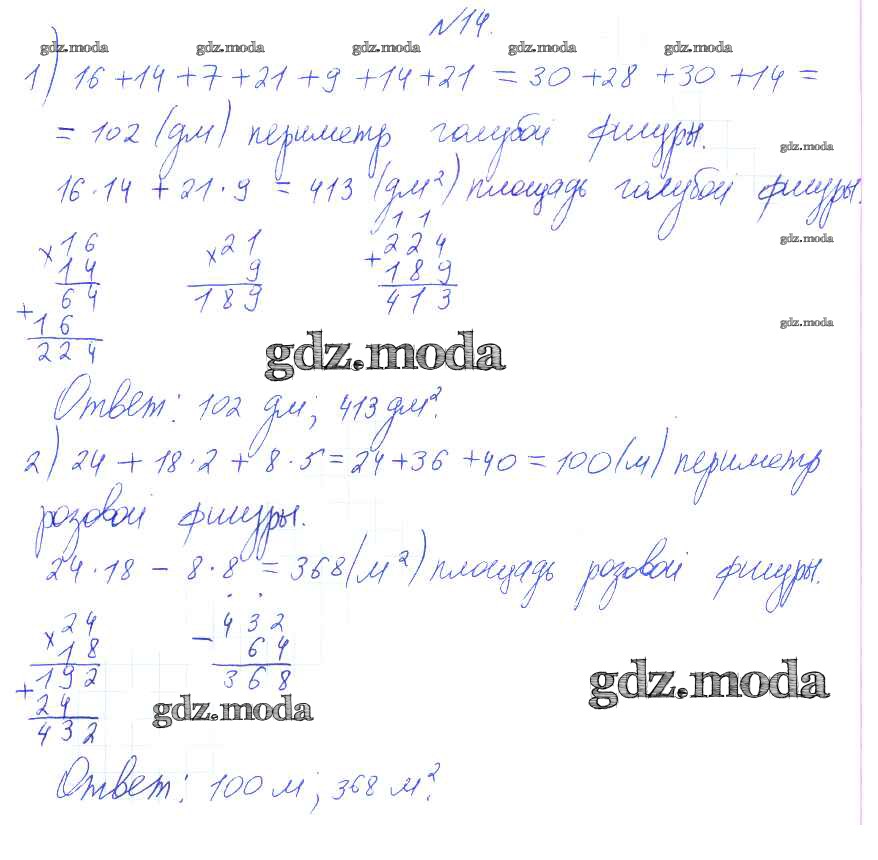 №14.
gdz.moda gdz.moda gdz.moda gdz.moda gdz.moda
1) 16 + 14 + 7 + 21 + 9 + 14 + 21 = 30 + 28 + 30 + 14 =
= 102 (дм) периметр голубой фигуры.
gdz.moda
16 · 14 + 21 · 9 = 413 (дм²) площадь голубой фигуры.
1 1
×16 ×21 +224
gdz.moda
14 9 189
64 189 413
+16
gdz.moda
224
gdz.moda
Ответ: 102 дм; 413 дм².
2) 24 + 18 · 2 + 8 · 5 = 24 + 36 + 40 = 100 (м) периметр
розовой фигуры.
24 · 18 – 8 · 8 = 368 (м²) площадь розовой фигуры.
×24 –432
18 64
192 368
gdz.moda
+24
gdz.moda
432
Ответ: 100 м; 368 м².